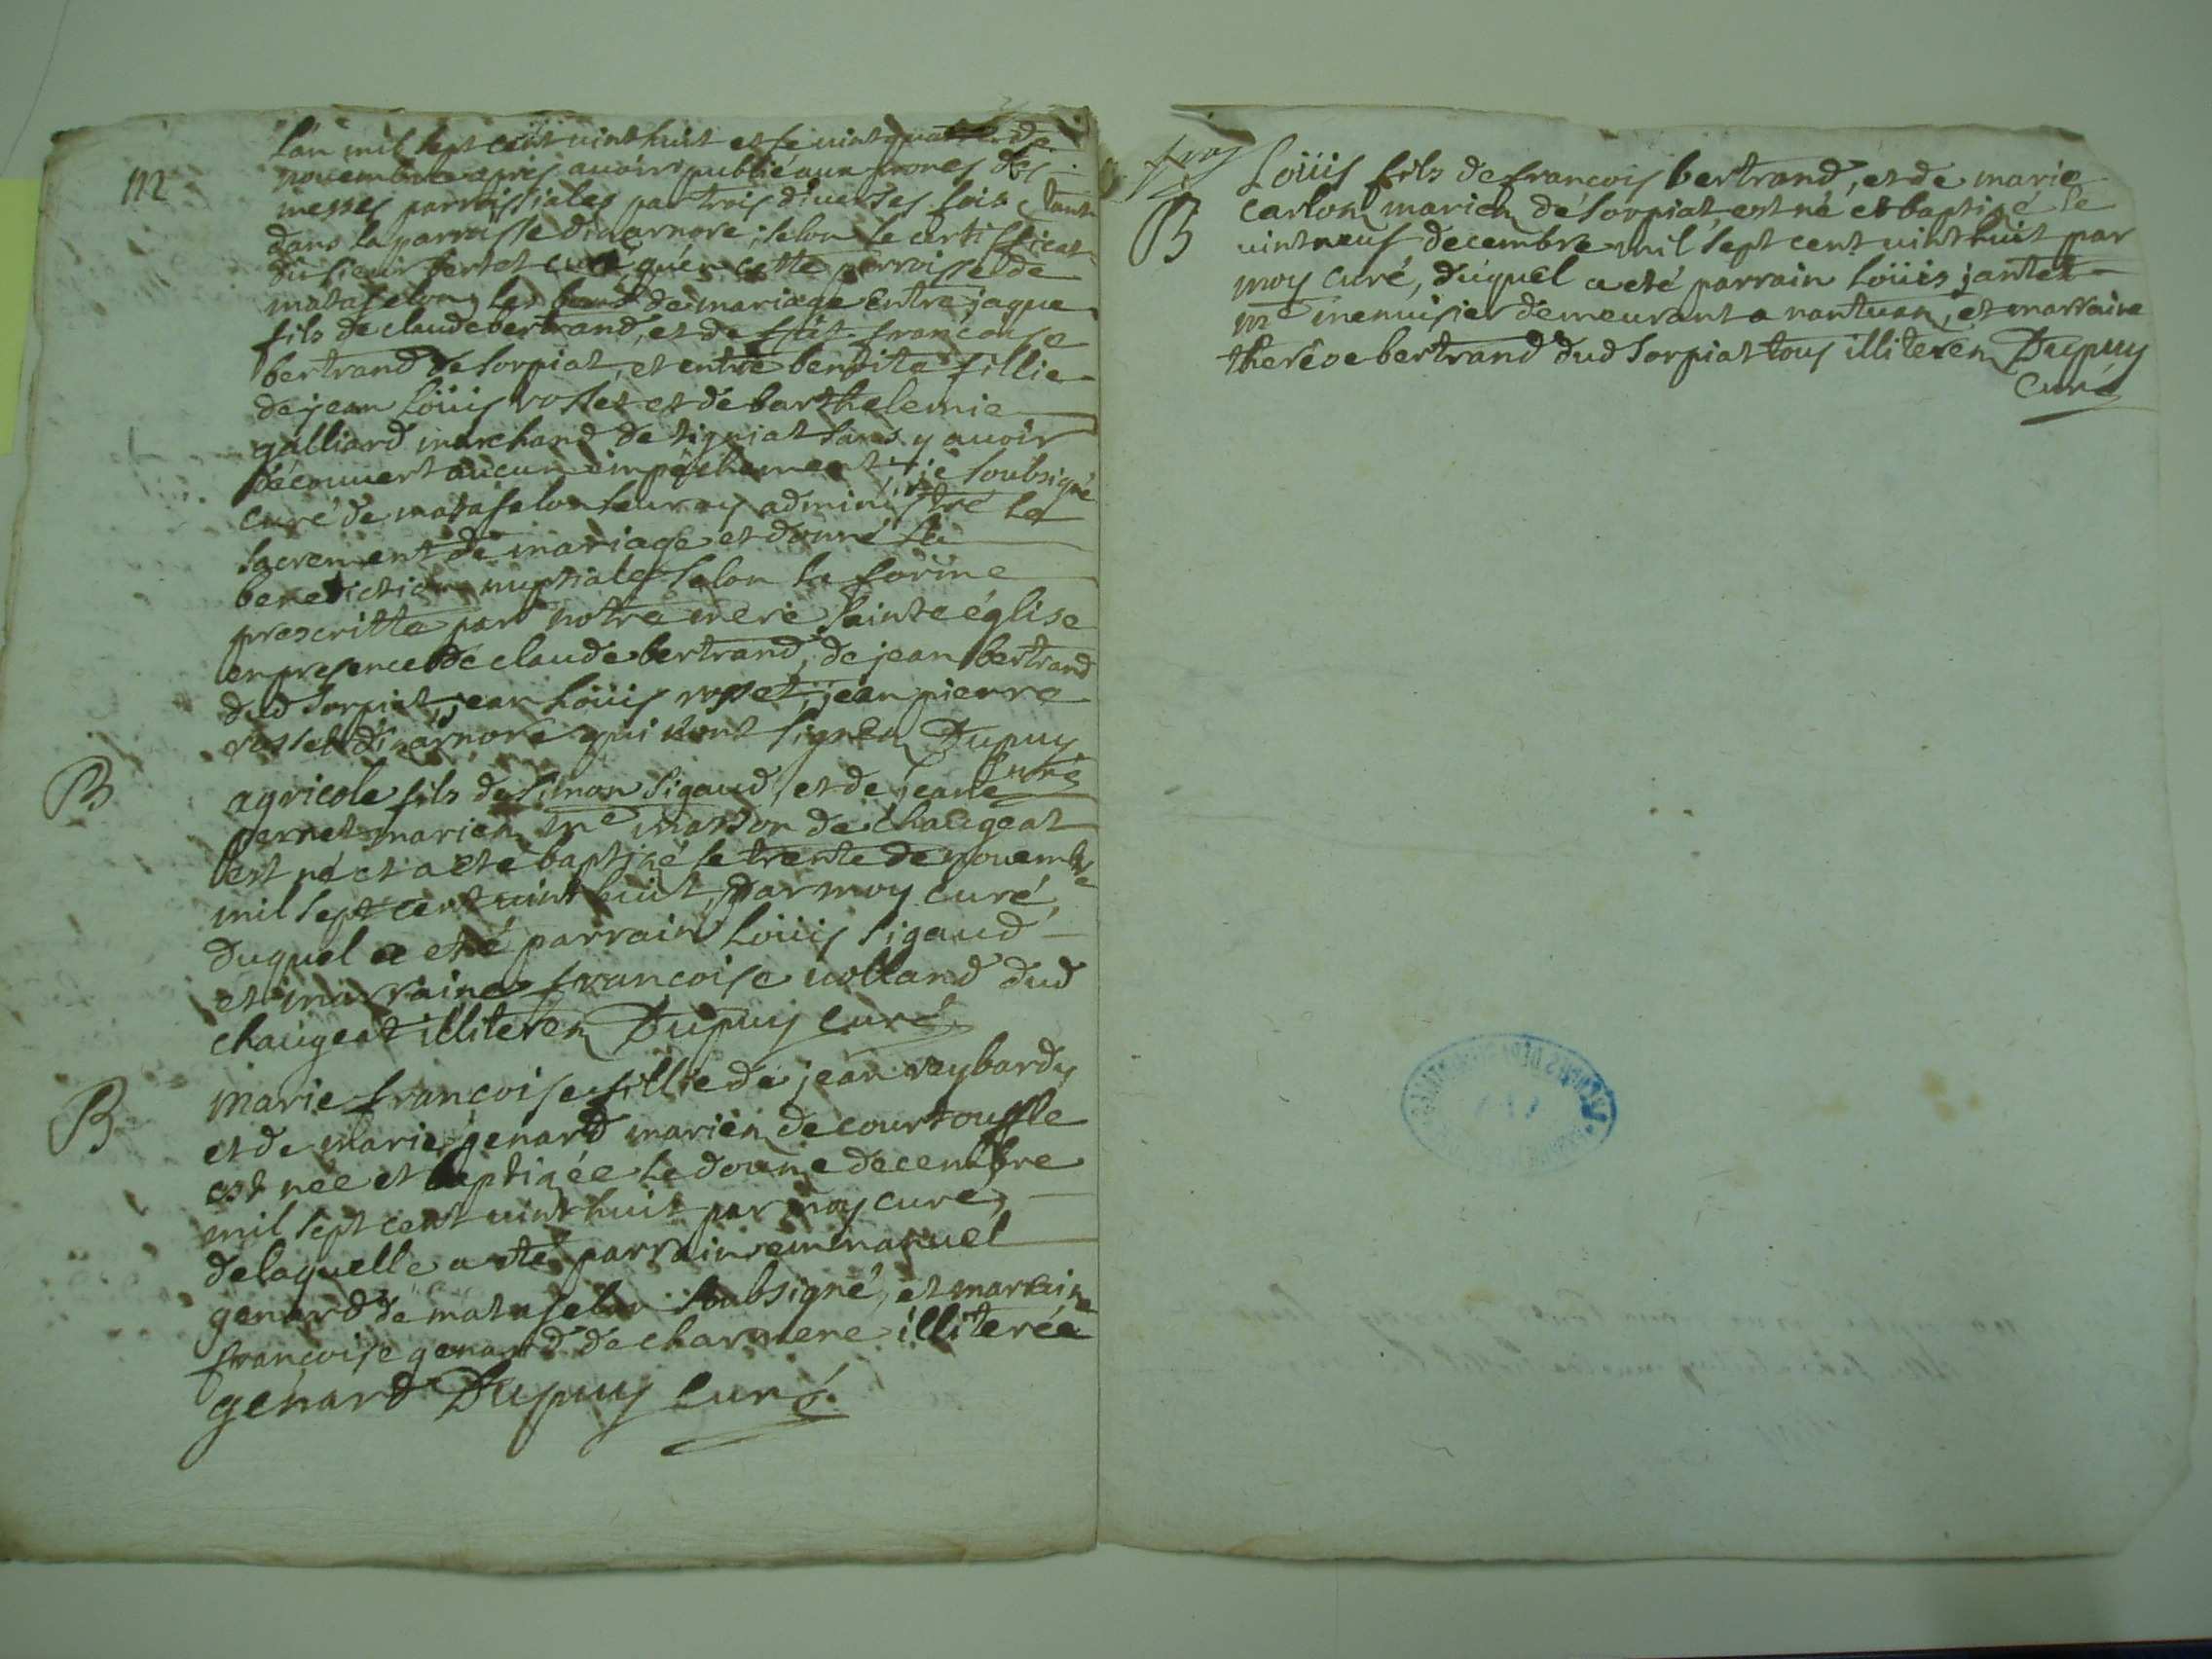 M
L'an mil sept cent vint huit et le vint quatre de
novembre apres avoir publié aux prones des
messes parroissiales par trois diverses fois tant
dans la parroisse dizarnore, selon le certifficat
du sieur bertet curé qu'en cette parroisse de
matafelon les bans de mariage entre jaque
fils de claude bertrand, et de francoise
bertrand de sorpiat, et entre benoite fillie
de jean Loüis rosset et de barthelemie
galliard marchand de tigniat sans y avoir
découvert aucun impêchement, je soubsigné
curé de matafelon leur ay administré le
sacrement de mariage et donné la
benediction nuptiale selon la forme
prescritte par notre mere sainte église
en presence de claude bertrand, de jean bertrand
dud sorpiat, jean Loüis rosset, jean pierre
rosset dizarnore qui n'ont signer Dupuy
Curé
B
agricole fils de simon sigaud, et de jeane
pernet mariez me masson de chaugeat
est né et a eté baptizé le trente de novembre
mil sept cent vint huit, par moy curé,
duquel a eté parrain Loüis sigaud
et marraine francoise volland dud
chaugeat illiterez Dupuy curé
B
Marie francoise fillie de jean reybardy
et de marie genard mariez de courtouffle
est née et baptizée le douze decembre
mil sept cent vint huit par moy curé,
de laquelle a eté parrain emmanuel
genard de matafelon soubsigné, et marraine
francoise genard de charmene illiterée
genard Dupuy curé
B
Loüis fils de francois bertrand, et de marie
carlon mariez de sorpiat, est né et baptizé le
vint neuf decembre mil sept cent vint huit par
moy curé, duquel a eté parrain Loüis jantet
me menuisier demeurant a nantua, et marraine
therése bertrand dud sorpiat tous illiterez Dupuy
Curé